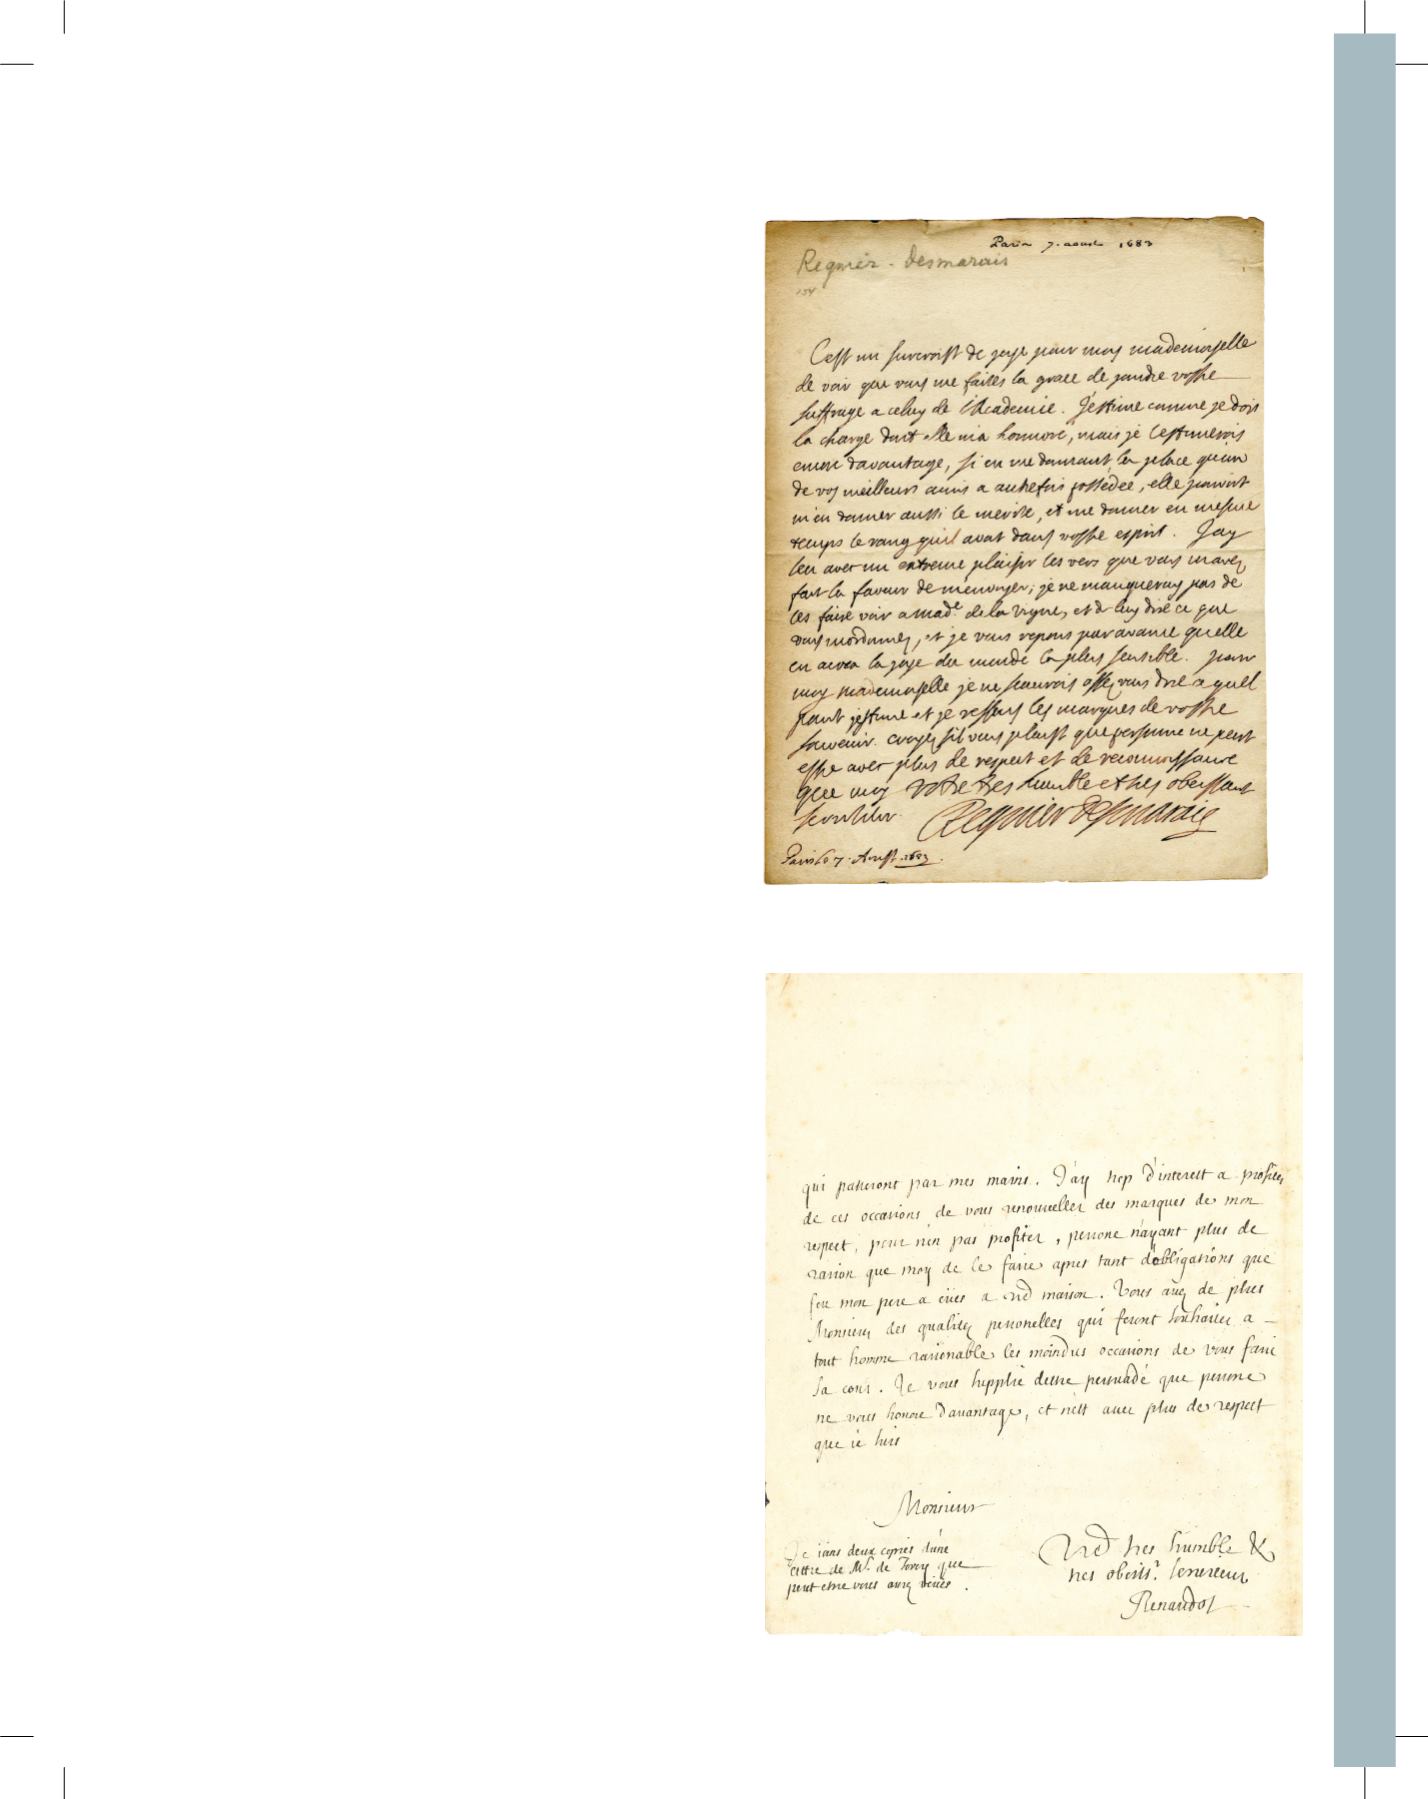 Paris 7. aoust 1683
Regnier - Desmarais
154
C'est un surcroist de joye pour moy mademoiselle
de voir que vous me faites la grace de joindre vostre
suffrage a celuy de l'Academie. J'estime comme je dois
la charge dont elle m'a honnoré, mais je l'estimerois
encore davantage, si en me donnant la place qu'un
de vos meilleurs amis a autrefois possédée, elle pouvoit
m'en donner aussi le merite, et me donner en mesme
temps le rang qu'il avoit dans vostre esprit. J'ay
leu avec un extreme plaisir les vers que vous m'avez
fait la faveur de m'envoyer; je ne manqueray pas de
les faire voir a mad.e de la Vigne, et de luy dire ce que
vous m'ordonnez, et je vous repons par avance qu'elle
en aura la joye du monde la plus sensible. pour
moy mademoiselle je ne sçaurois assez vous dire a quel
point j'estime et je ressens les marques de vostre
souvenir. croyez s'il vous plaist que personne ne peut
estre avec plus de respect et de reconnoissance
que moy votre tres humble et tres obeissant
serviteur. Regnier Desmarais
Paris le 7. Aoust. 1683.
qui passeront par mes mains. J'ay trop d'interest a profiter
de ces occasions de vous renouveller des marques de mon
respect, pour n'en pas profiter, personne n'ayant plus de
raison que moy de le faire apres tant d'obligations que
feu mon pere a eües a vre maison. Vous avez de plus
Monsieur des qualitez personelles qui feront souhaiter a
tout homme raisonable les moindres occasions de vous faire
sa cour. Je vous supplie d'estre persuadé que personne
ne vous honore d'avantage, et n'est avec plus de respect
que ie suis
Monsieur
Je ioins deux copies d'une
lettre de Mr. de Torcy que
peut estre vous avez veües.
Vre tres humble &
tres obeiss.t serviteur
Renaudot